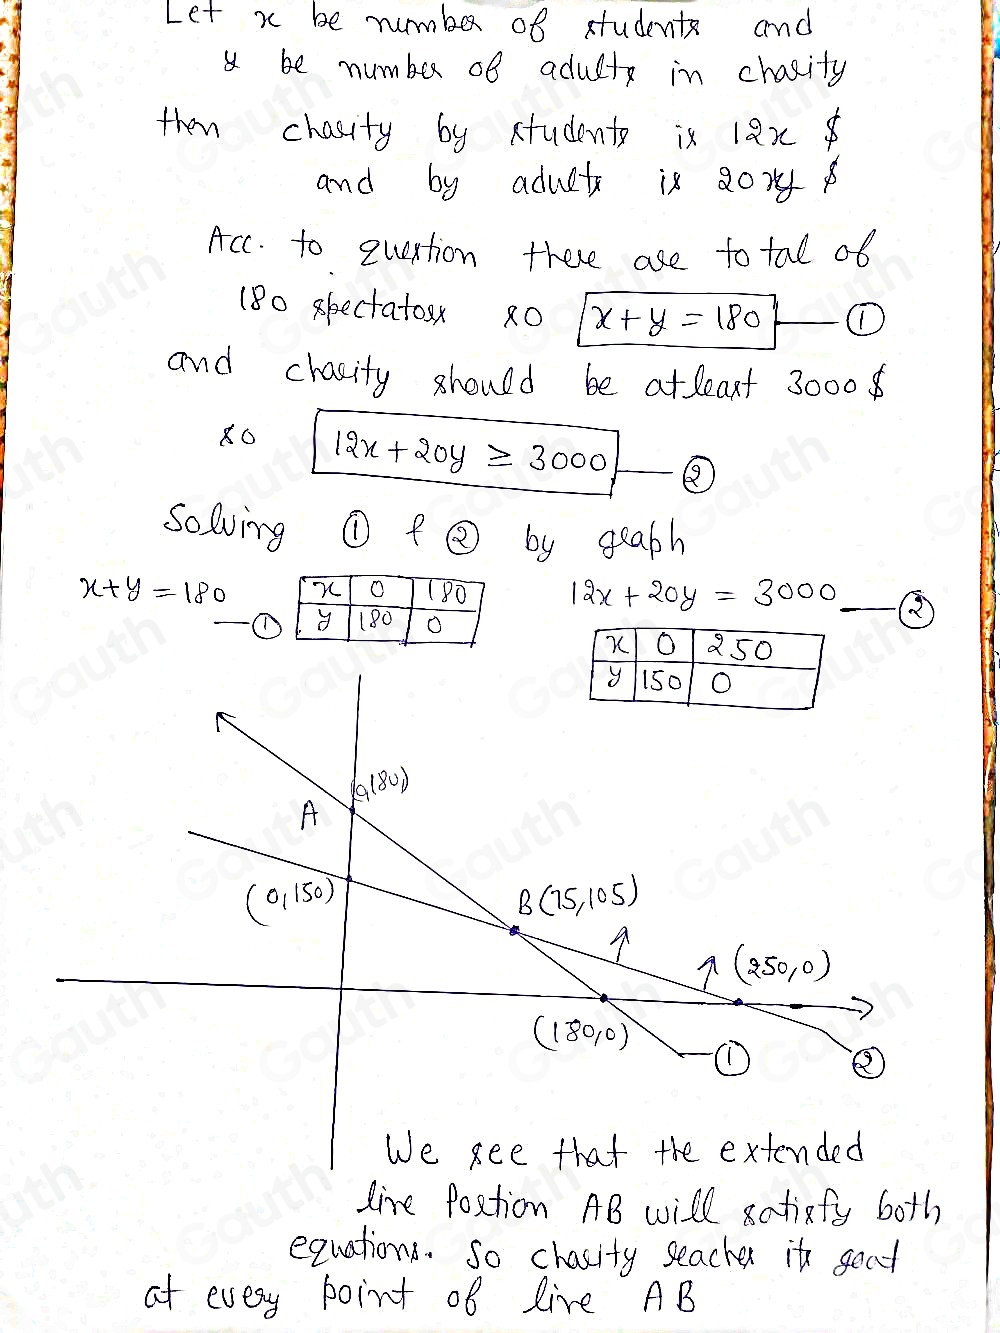 Let x be number of students and
y be number of adults in charity
then charity by students is 12x $
and by adults is 20 y $
Acc. to question there are total of
180 spectators so x+y = 180 — ①
and charity should be atleast 3000 $
so 12x + 20y ≥ 3000 — ②
Solving ① & ② by graph
x+y = 180 — ①
x 0 180
y 180 0
12x + 20y = 3000 — ②
x 0 250
y 150 0
(0,180)
A
(0,150)
B(75,105)
(250,0)
(180,0)
①
②
We see that the extended
line Portion AB will satisfy both
equations. So charity reaches its goal
at every point of line AB
Gauth